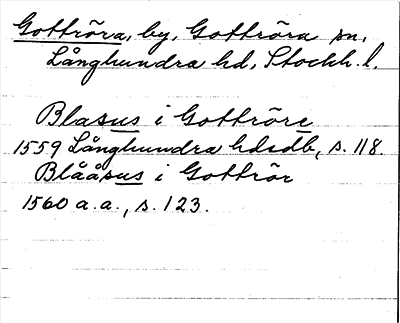 Gottröra, by, Gottröra sn,
Långhundra hd, Stockh. l.
Blasus i Gottröre
1559 Långhundra hdsdb, s. 118.
Blååsus i Gottrör
1560 a.a., s. 123.